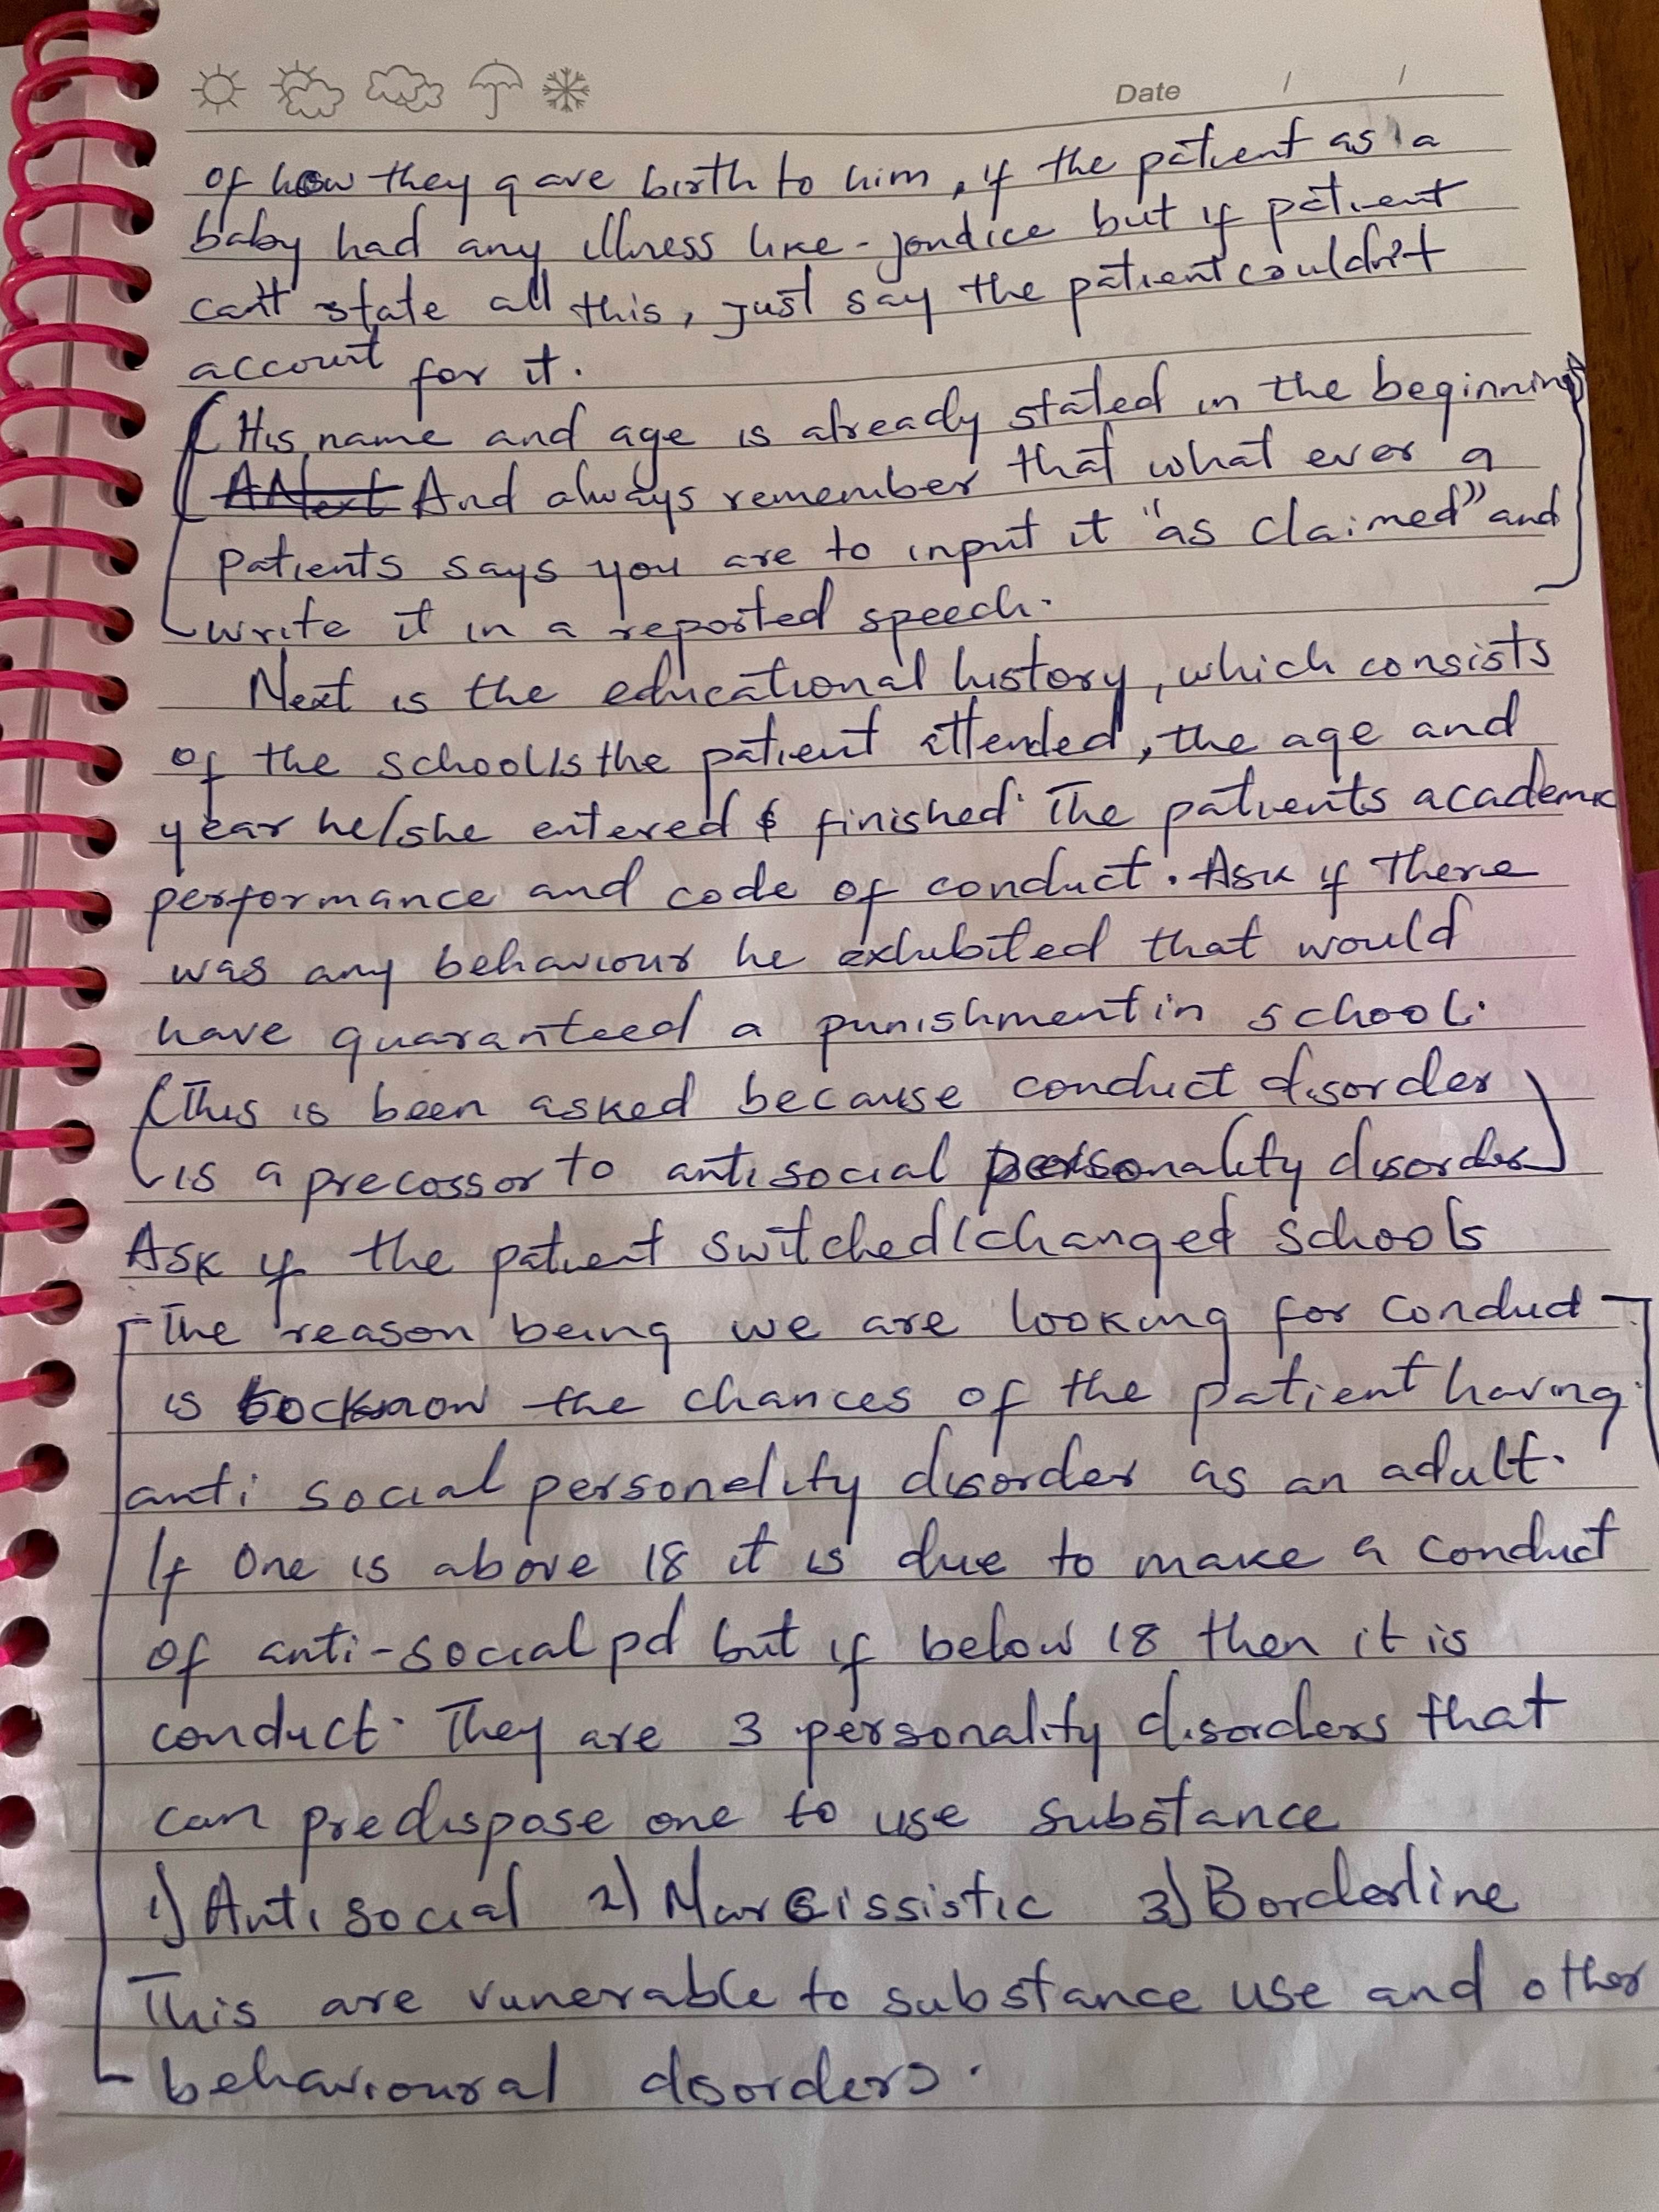 Date / /
of how they gave birth to him, if the patient as a
baby had any illness like - jondice but if patient
can't state all this, just say the patient couldn't
account for it.
(His name and age is already stated in the beginning)
And always remember that what ever a
patients says you are to input it "as claimed" and
write it in a reported speech.
Next is the educational history, which consists
of the school/s the patient attended, the age and
year he/she entered & finished. The patients academic
performance and code of conduct. Ask if there
was any behaviour he exhibited that would
have guaranteed a punishment in school.
(This is been asked because conduct disorder
is a precossor to antisocial personality disorder)
Ask if the patient switched/changed schools
The reason being we are looking for conduct
is to know the chances of the patient having
anti social personality disorder as an adult.
If one is above 18 it is due to make a conduct
of anti-social pd but if below 18 then it is
conduct. They are 3 personality disorders that
can predispose one to use substance
1) Antisocial 2) Narcissistic 3) Borderline
This are vunerable to substance use and other
behavioural disorders.